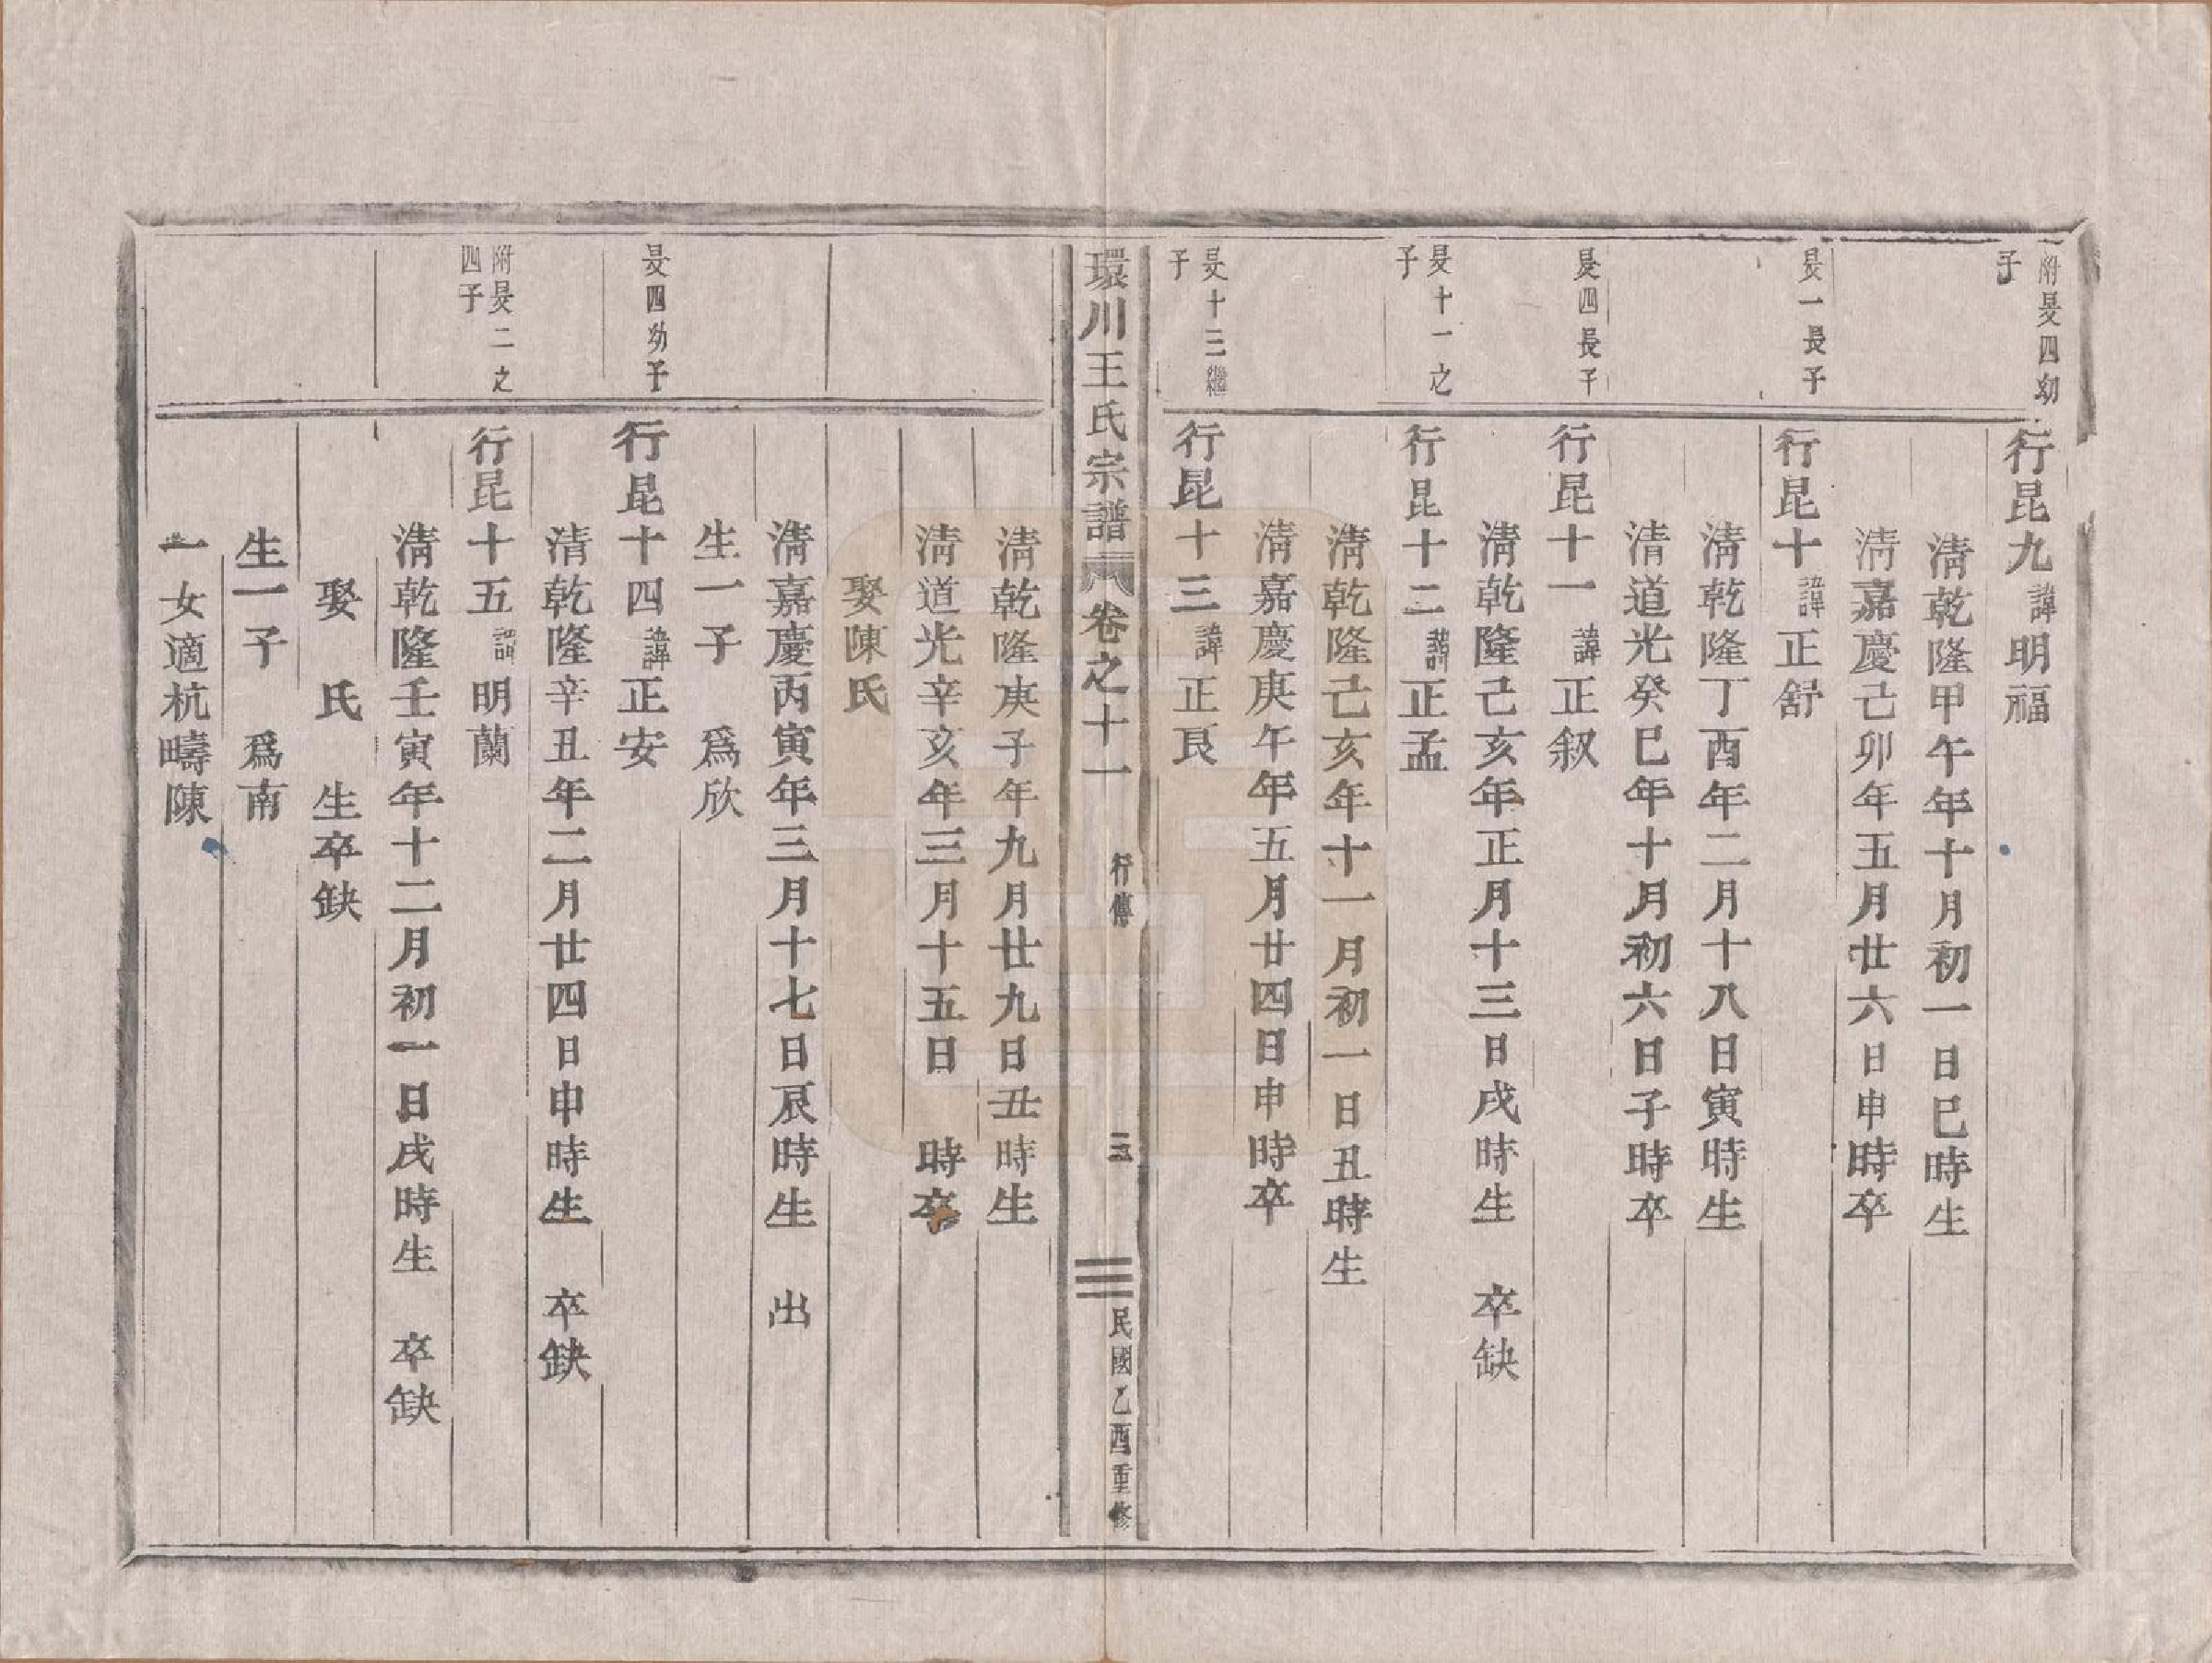 附旻四幼
子
行昆九諱明福
淸乾隆甲午年十月初一日巳時生
淸嘉慶己卯年五月廿六日申時卒
旻一長子
行昆十諱正舒
淸乾隆丁酉年二月十八日寅時生
淸道光癸巳年十月初六日子時卒
旻四長子
行昆十一諱正叙
淸乾隆己亥年正月十三日戌時生 卒缺
旻十一之
子
行昆十二諱正孟
淸乾隆己亥年十一月初一日丑時生
淸嘉慶庚午年五月廿四日申時卒
旻十三繼
子
行昆十三諱正良
環川王氏宗譜 卷之十一 行傳 三 民國乙酉重修
淸乾隆庚子年九月廿九日丑時生
淸道光辛亥年三月十五日 時卒
娶陳氏
淸嘉慶丙寅年三月十七日辰時生 出
生一子 爲欣
旻四幼子
行昆十四諱正安
淸乾隆辛丑年二月廿四日申時生 卒缺
附旻二之
四子
行昆十五諱明蘭
淸乾隆壬寅年十二月初一日戌時生 卒缺
娶 氏 生卒缺
生一子 爲南
一女適杭疇陳